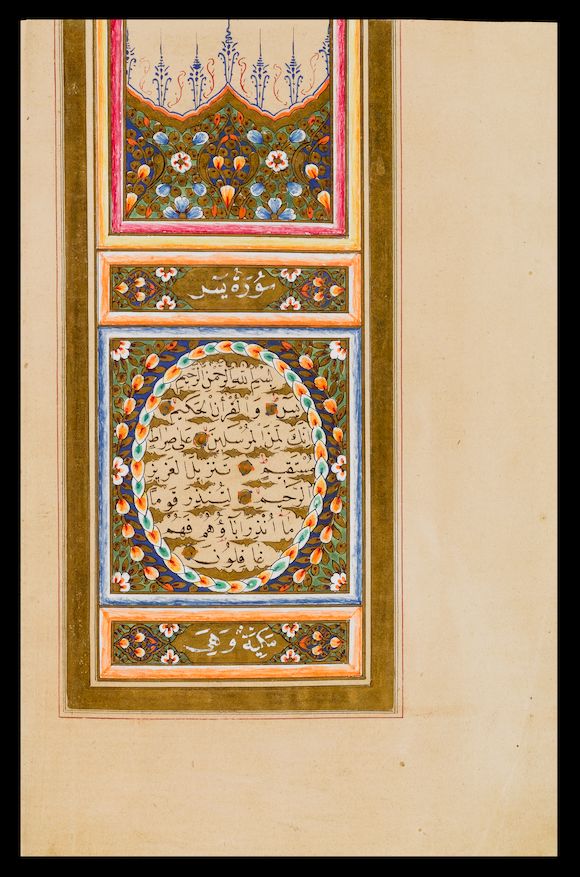 سُورَةُ يٰسٓ
بسم الله الرحمن الرحيم
يس وَالْقُرْآنِ الْحَكِيمِ
إنك لَمِنَ الْمُرْسَلِينَ عَلَى صِرَاطٍ
مُسْتَقِيمٍ تَنْزِيلَ الْعَزِيزِ
الرَّحِيمِ لِتُنْذِرَ قَوْمًا
مَا أُنْذِرَ آبَاؤُهُمْ فَهُمْ
غَافِلُونَ
مَكِّيَّةٌ وَهِيَ